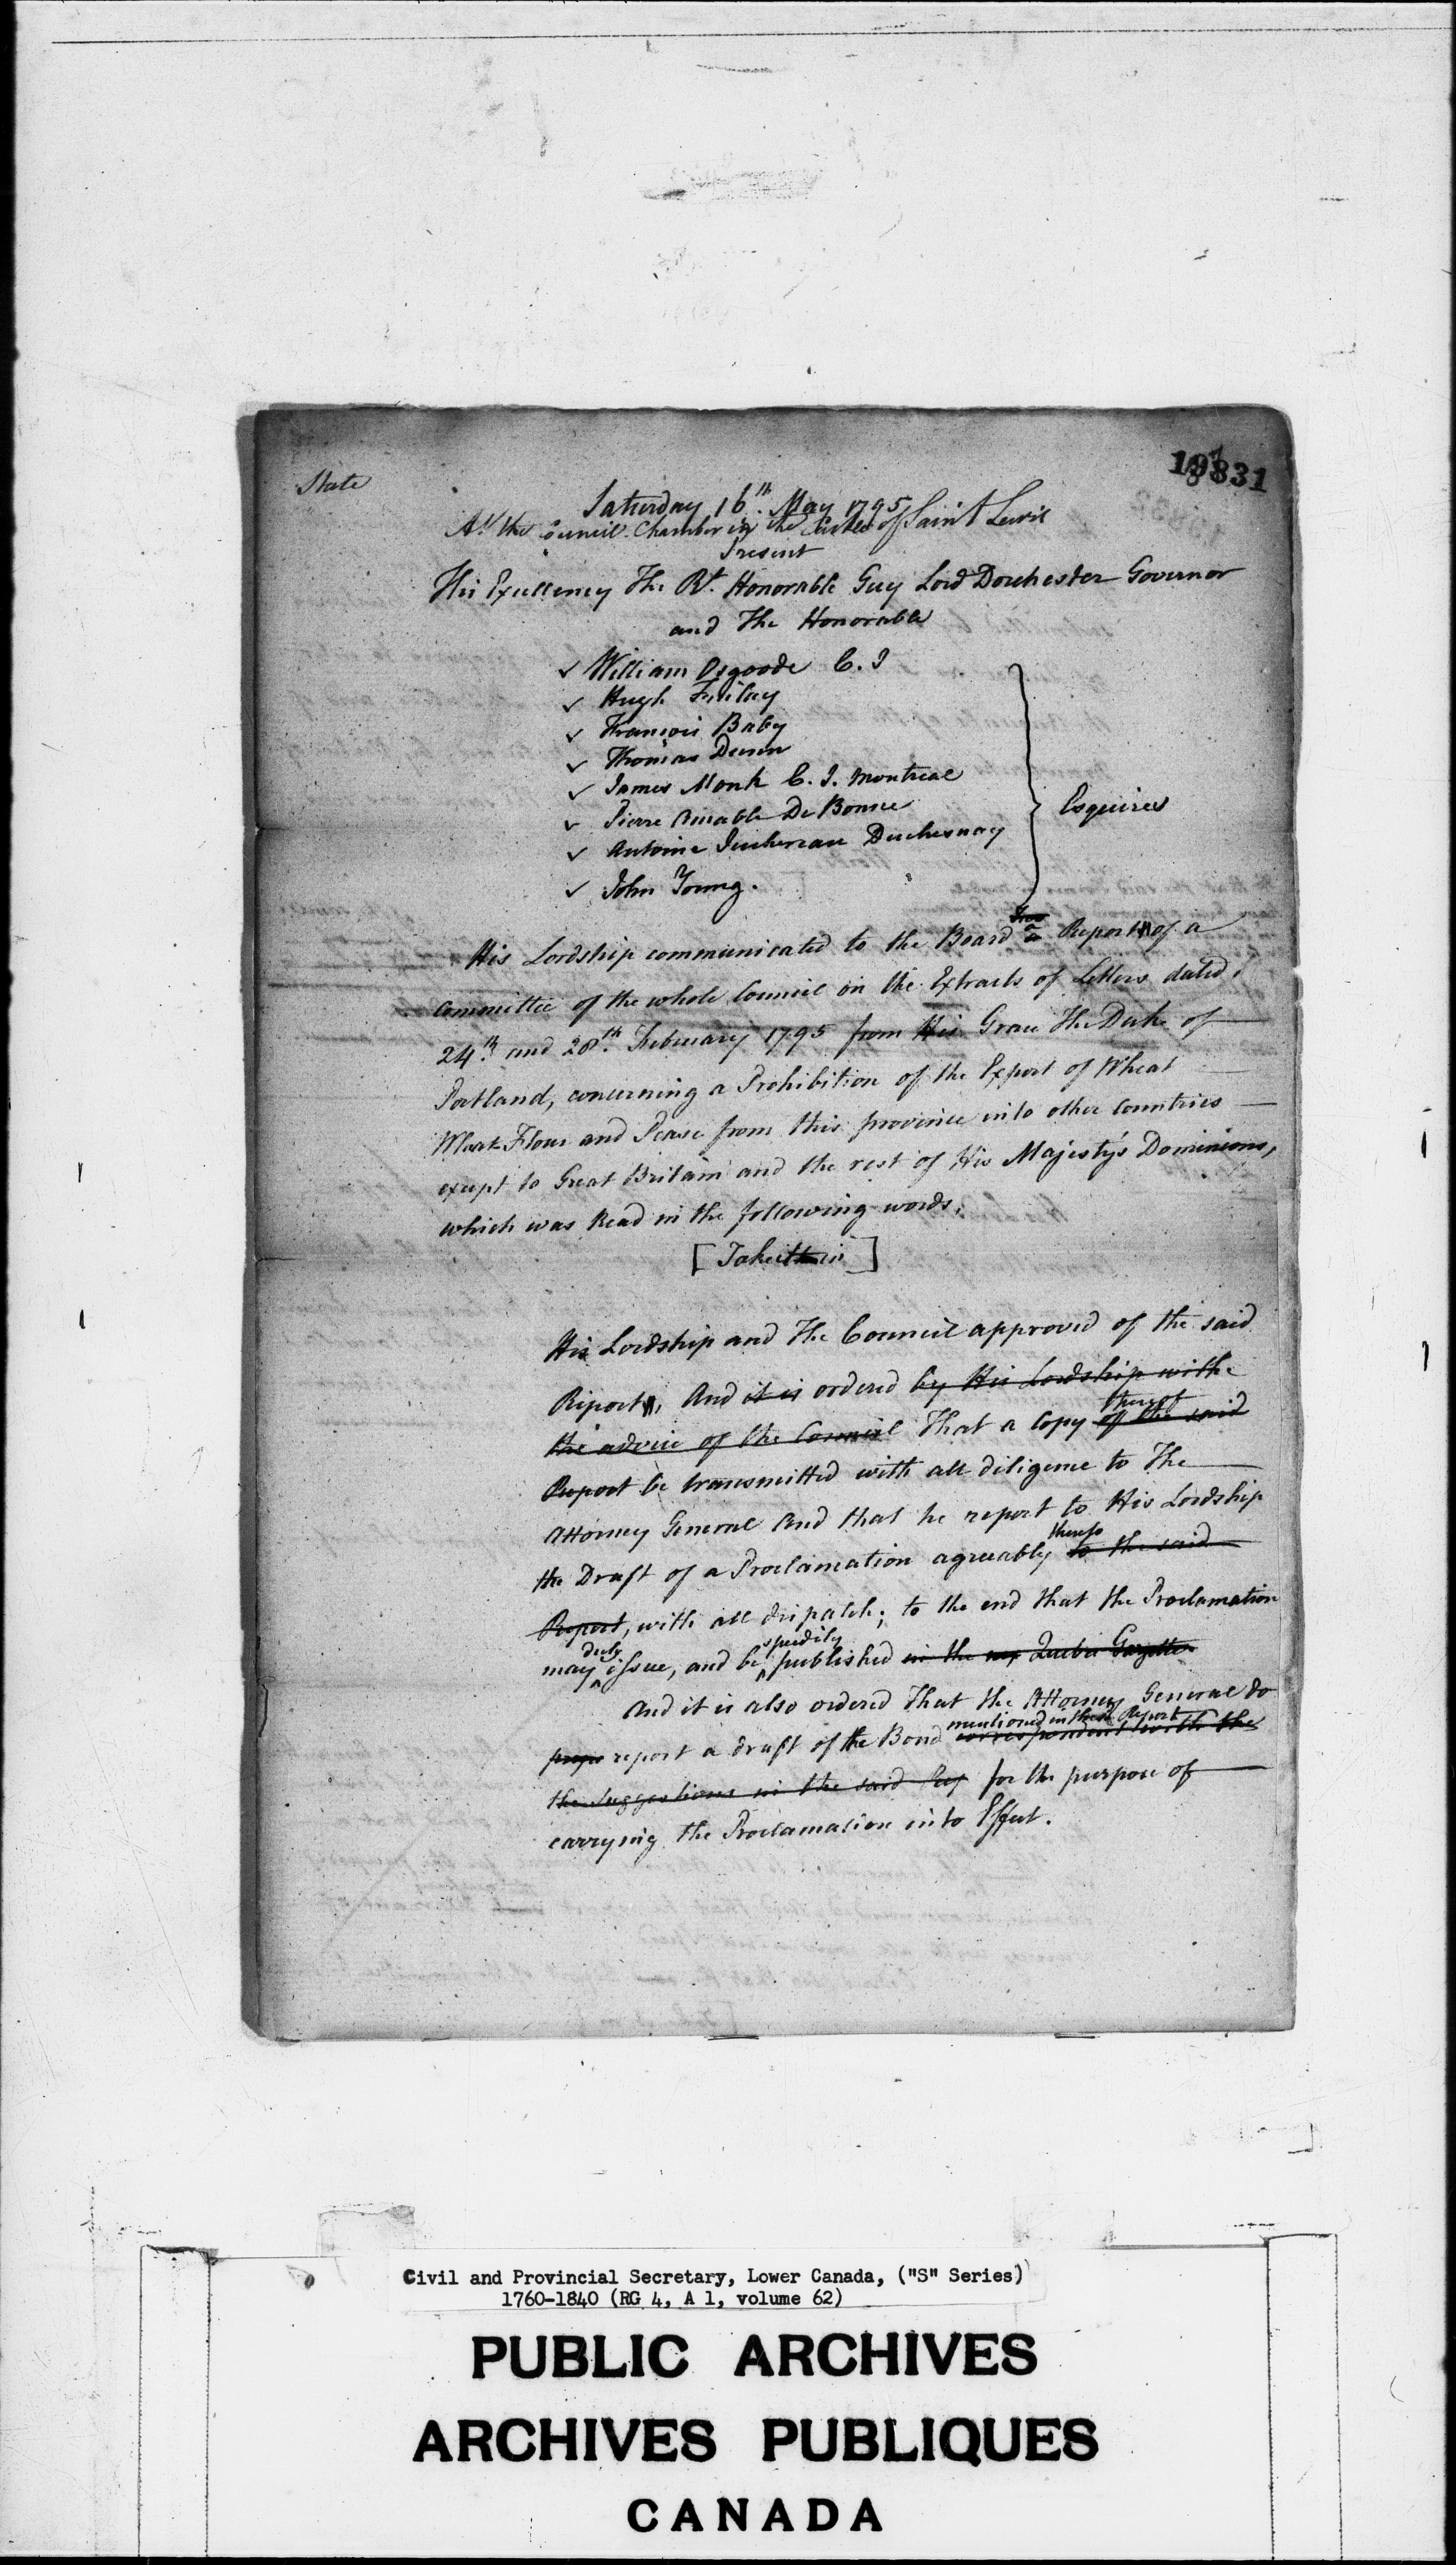 State
19831
Saturday 16th. May 1795
At the Council Chamber in the Castle of Saint Lewis
Present
His Excellency The Rt. Honorable Guy Lord Dorchester Governor
and The Honorable
✓ William Osgoode C. J
✓ Hugh Finlay
✓ François Baby
✓ Thomas Dunn
✓ James Monk C. J. Montreal
✓ Pierre Amable De Bonne
✓ Antoine Juchereau Duchesnay
✓ John Young.
Esquires
His Lordship communicated to the Board a Report of a
committee of the whole Council on the Extracts of Letters dated
24th. and 28th. February 1795 from His Grace The Duke of
Portland, concerning a Prohibition of the Export of Wheat
Wheat Flour and Pease from this province into other Countries
except to Great Britain and the rest of His Majesty's Dominions,
which was Read in the following words,
[Take it in]
His Lordship and The Council approved of the said
Report, And it is ordered by His Lordship with the
the advice of the Council That a Copy thereof of the said
Report be transmitted with all diligence to The
Attorney General and that he report to His Lordship
the Draft of a Proclamation agreeably thereto to the said
Report, with all dispatch; to the end that the Proclamation
may duly issue, and be speedily published in the Quebec Gazette
And it is also ordered That the Attorney General do
report a draft of the Bond mentioned in the Report correspondent with the
the Suggestions in the said for the purpose of
carrying the Proclamation into Effect.
Civil and Provincial Secretary, Lower Canada, ("S" Series)
1760-1840 (RG 4, A 1, volume 62)
PUBLIC ARCHIVES
ARCHIVES PUBLIQUES
CANADA